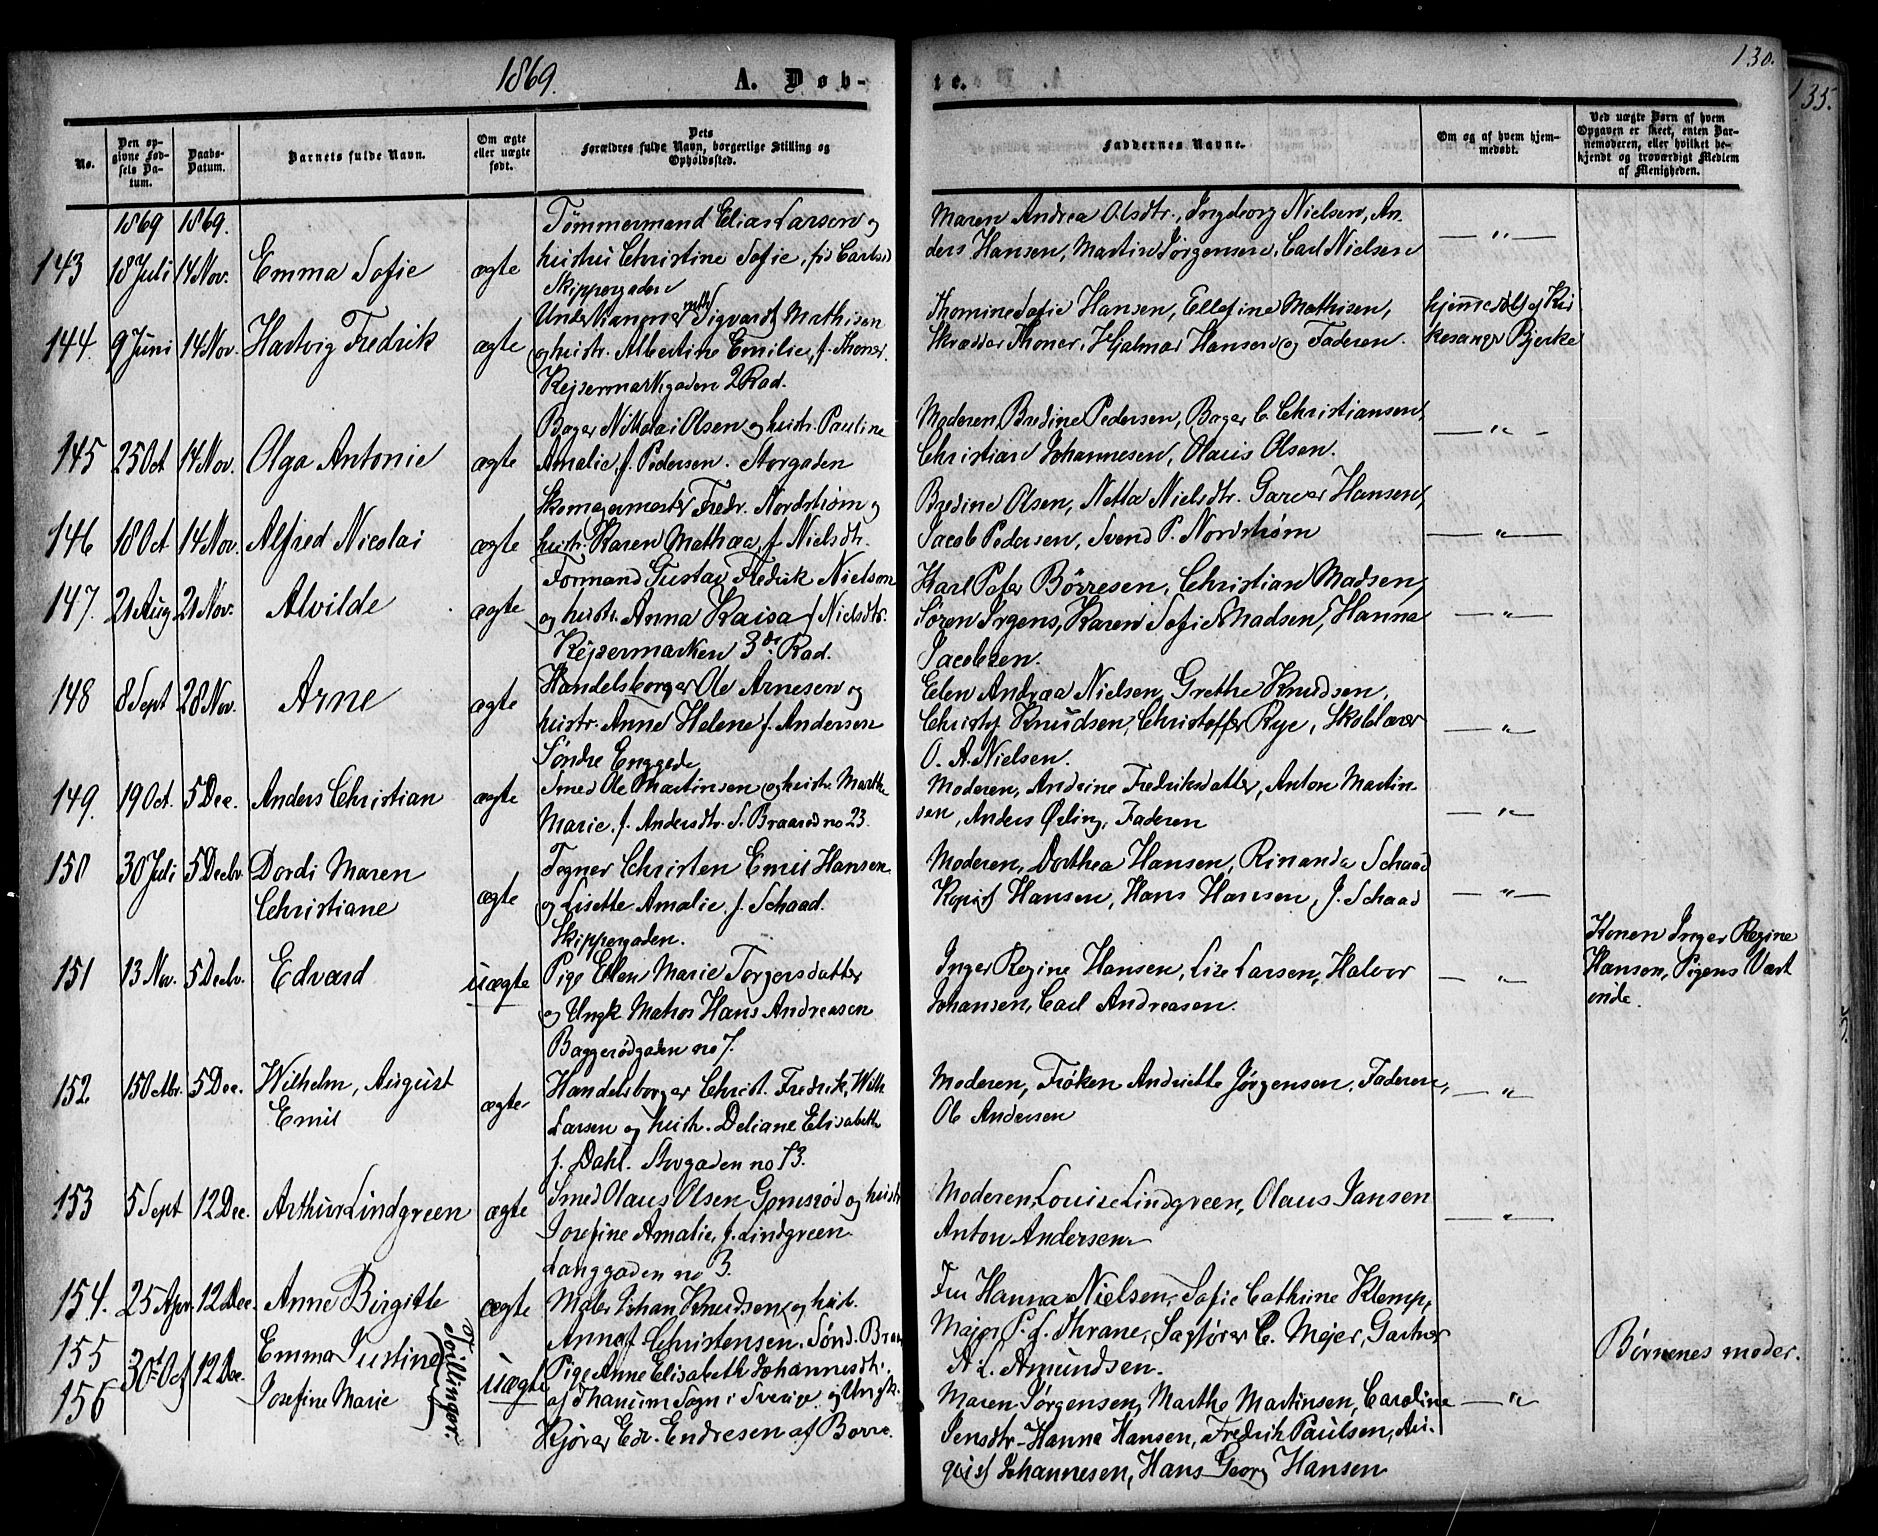 1869.
A. Døb-
te.
130.
135.
No.
Den op-
givne Fød-
sels Da-
tum.
Daabs-
Datum.
Barnets fulde Navn.
Om ægte
eller uægte
født.
Dets
Forældres fulde Navn, borgerlige Stilling og
Opholdssted.
Faddernes Navne.
Om og af hvem hjem-
medøbt.
Ved uægte Børn af hvem
Opgaven er skeet, enten Bar-
nemoderen, eller hvilket be-
kjendt og troværdigt Medlem
af Menigheden.
1869 1869.
143 18 Juli 14 Nov. Emma Sofie ægte
Tømmermand Elias Larsen og
hustru Christine Sofie, f.
Skippergaden
Maren Andrea Olsdtr., Ingeborg Nielsen, An-
ders Hansen, Martin Jørgensen, Carl Nielsen
— " —
144. 9 Juni 14 Nov. Hartvig Fredrik ægte
Sigvardt Mathisen
og hustr. Albertine Emilie, f. Thoner.
Kejsermarkgaden 2 Rad.
Thomine Sofie Hansen, Ellefine Mathisen,
Skrædder Thoner, Hjalmar Hansen og Faderen.
hjemmedøbt af Kir-
kesanger Bjerke
145 25 Oct 14 Nov. Olga Antonie ægte
Bager Nikolai Olsen og hustr. Pauline
Amalie, f. Pedersen. Storgaden
Moderen, Bredine Pedersen, Bager C. Christiansen,
Christian Johannesen, Olaus Olsen.
— " —
146 18 Oct 14 Nov. Alfred Nicolai ægte
Skomagermester Fredr. Nordstrøm og
hustr. Karen Mathea, f. Nielsdtr.
Bredine Olsen, Netta Nielsdtr. Garver Hansen,
Jacob Pedersen, Svend P. Nordstrøm
— " —
147. 21 Aug 21 Nov. Alvilde ægte
Formand Gustav Fredrik Nielsen
og hustr. Anna Kaisa f. Nielsdtr.
Kejsermarken 3de Rad.
Karl Peter Børresen, Christian Madsen,
Søren Irgens, Karen Sofie Madsen, Hanna
Jacobsen.
— " —
148 8 Sept 28 Nov. Arne ægte
Handelsborger Ole Arnesen og
hustr. Anne Helene f. Andersen
Søndre Enggade
Elen Andrea Nielsen, Grethe Knudsen,
Christof Knudsen, Christoffer Rye, Skolelærer
O. A. Nielsen.
— " —
149. 19 Oct. 5 Dec. Anders Christian ægte
Smed Ole Martinsen og hustr. Marthe
Marie, f. Andersdtr. S. Braarød no 23.
Moderen, Andrine Fredriksdatter, Anton Martin-
sen, Anders Ørling, Faderen
— " —
150 30 Juli 5 Decbr. Dordi Maren
Christiane ægte
Togner Christen Emil Hansen
og Lisette Amalie, f. Schaad.
Skippergaden.
Moderen, Dorthea Hansen, Rinanda Schaad
Kopist Hansen, Hans Hansen, J. Schaad
— " —
151 13 Nov. 5 Decbr. Edvard uægte
Pige Ellen Marie Torgersdatter
og Ungk. Matros Hans Andreasen
Baggerødgaden no 7.
Inger Regine Hansen, Lise Larsen, Halvor
Johansen, Carl Andreasen.
— " —
Konen Inger Regine
Hansen, Pigens Vært-
inde.
152 15 Octbr. 5 Dec. Wilhelm, August
Emil ægte
Handelsborger Christ. Fredrik, Wilh
Larsen og hustr. Deliane Elisabeth
f. Dahl. Storgaden no 73.
Moderen, Frøken Andriette Jørgensen, Faderen,
Ole Andersen
— " —
153 5 Sept 12 Dec. Arthur Lindgreen ægte
Smed Olaus Olsen Gomsrød og hustr
Josefine Amalie, f. Lindgreen
Langgaden no 3.
Moderen, Louise Lindgreen, Olaus Jansen
Anton Andersen
— " —
154. 25 Apr. 12 Dec. Anne Birgitte ægte
Maler Johan Knudsen, og hust.
Anne f. Christensen. Sønd. Braa
Fru Hanna Nielsen, Sofie Cathrine Klemp,
Major P. J. Thrane, Sagfører C. Mejer, Gartner
A. L. Amundsen.
155 Emma Justine
156 30te Oct 12 Dec. Josefine Marie Tvillinger. uægte
Pige Anne Elisabeth Johannesdtr.
af Thanum Sogn i Sverige og Ungk.
Kjører Edv. Endresen af Borre.
Maren Jørgensen, Marthe Martinsen, Caroline
Jensdtr. Hanna Hansen, Fredrik Paulsen, Au-
gust Johannesen, Hans Georg Hansen
— " —
Børnenes moder.